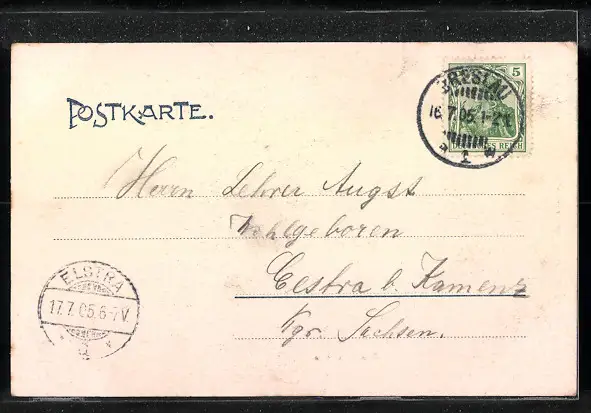 POSTKARTE.
BRESLAU
16.7.05.1-2N.
1
5
DEUTSCHES REICH
Herrn Lehrer Augst
Wohlgeboren
Oestra b. Kamenz
Kgr. Sachsen.
ELSTRA
17.7.05.6-7V